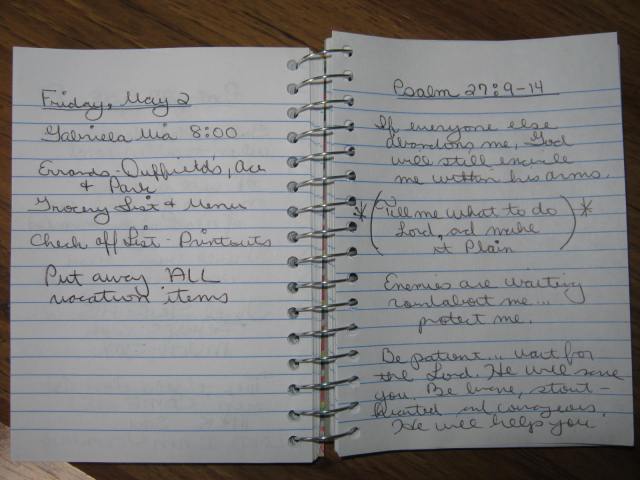 Friday, May 2
Gabriela Mia 8:00
Errands - Duffield's, Ace
& Park
Grocery List & Menu
Check off List - Printouts
Put away ALL
vacation items
Psalm 27:9-14
If everyone else
abandons me, God
will still encircle
me within his arms.
* (Tell me what to do *
Lord, ad make
it Plain)
Enemies are waiting
roundabout me...
protect me.
Be patient... wait for
the Lord. He will save
you. Be brave, stout-
hearted and courageous.
He will helps you